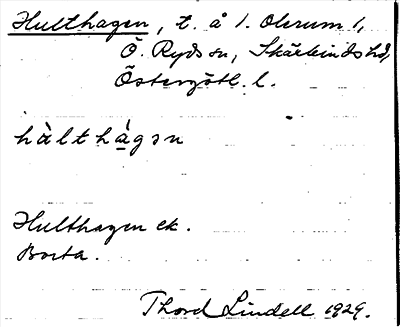 Hulthagen, t. å l. Okrum 1,
Ö. Ryds sn, Skärkinds hd,
Östergötl. l.
hàlthágən
Hulthagen ek.
Borta.
Thord Lindell 1929.